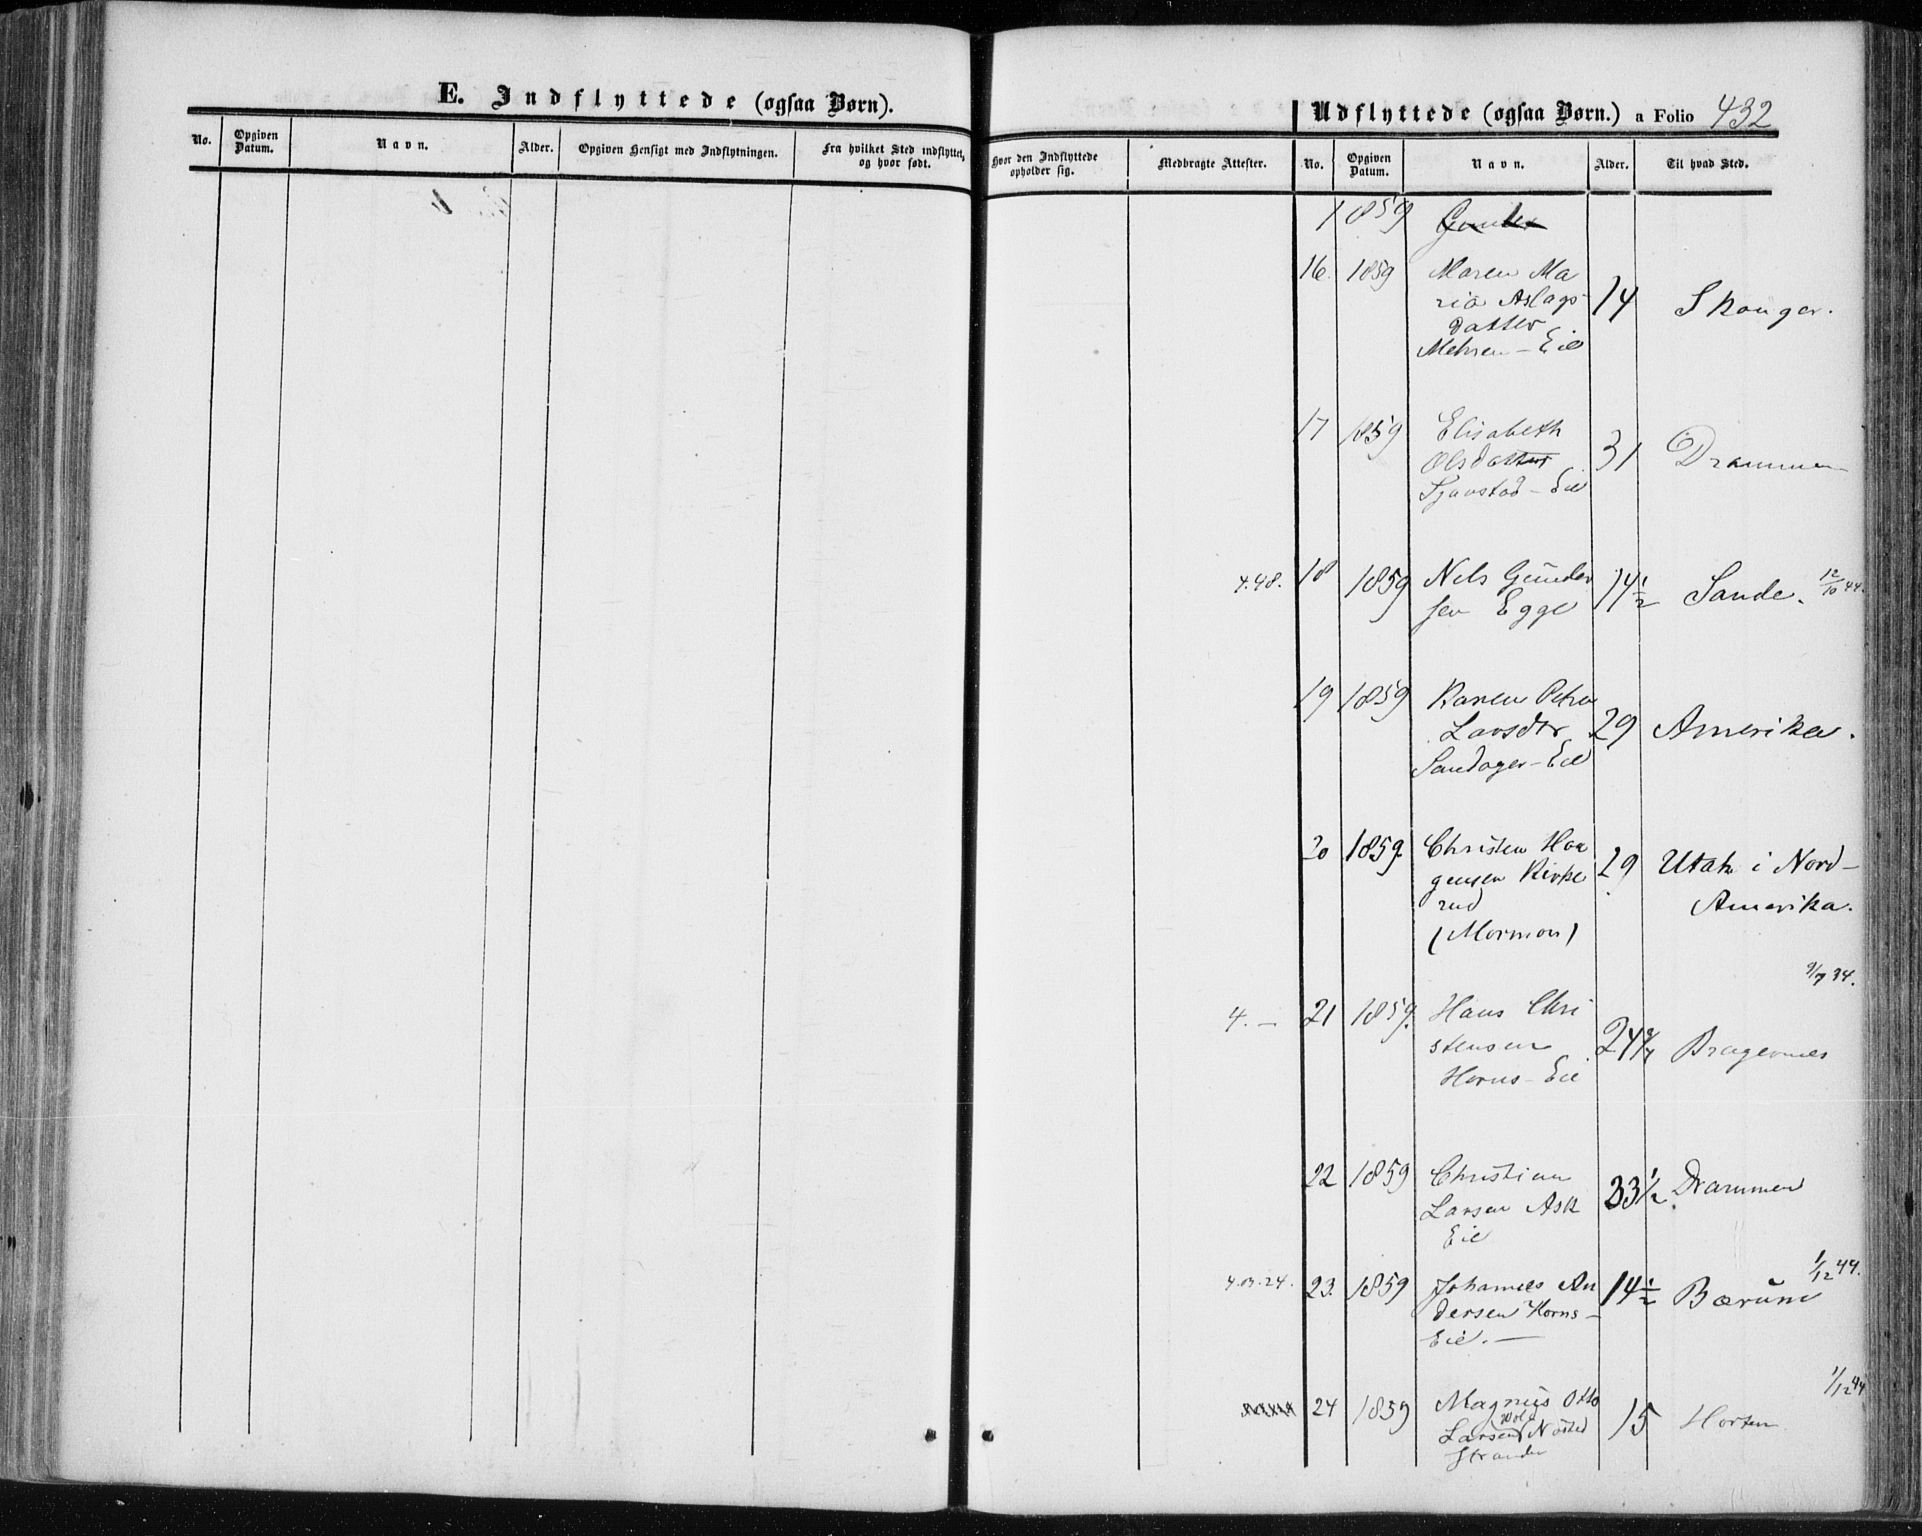 E. Indflyttede (ogsaa Børn).
No.
Opgiven Datum.
Navn.
Alder.
Opgiven Hensigt med Indflytningen.
Fra hvilket Sted indflyttet, og hvor født.
Hvor den Indflyttede opholder sig.
Medbragte Attester.
Udflyttede (ogsaa Børn.) a Folio 432
No.
Opgiven Datum.
Navn.
Alder.
Til hvad Sted.
1859
16. 1859 Maren Ma
ria Aslags- 14 Skouger.
datter
Mehren - Eie
17 1859 Elisabeth
Olsdatter 31 Drammen
Sjøvstad - Eie
4.48. 18 1859 Nils Gunder 14½ Sande. 12/10 44.
sen Egge
19 1859 Karen Petra
Larsdtr 29 Amerika.
Sandager - Eie
20 1859. Christen Haa
gensen Kirke 29 Utah i Nord-
rud Amerika.
(Mormon)
9/7 34.
4. — 21 1859. Hans Chri
stensen 24 Bragernes
Horns - Eie
22 1859 Christian
Larsen Ask 33½ Drammen
Eie
1/12 44.
23. 1859 Johannes An 14½ Bærum
dersen Horns-
Eie. —
1/12 44
24 1859 Magnus Otto
Larsen 15 Horten
Strander